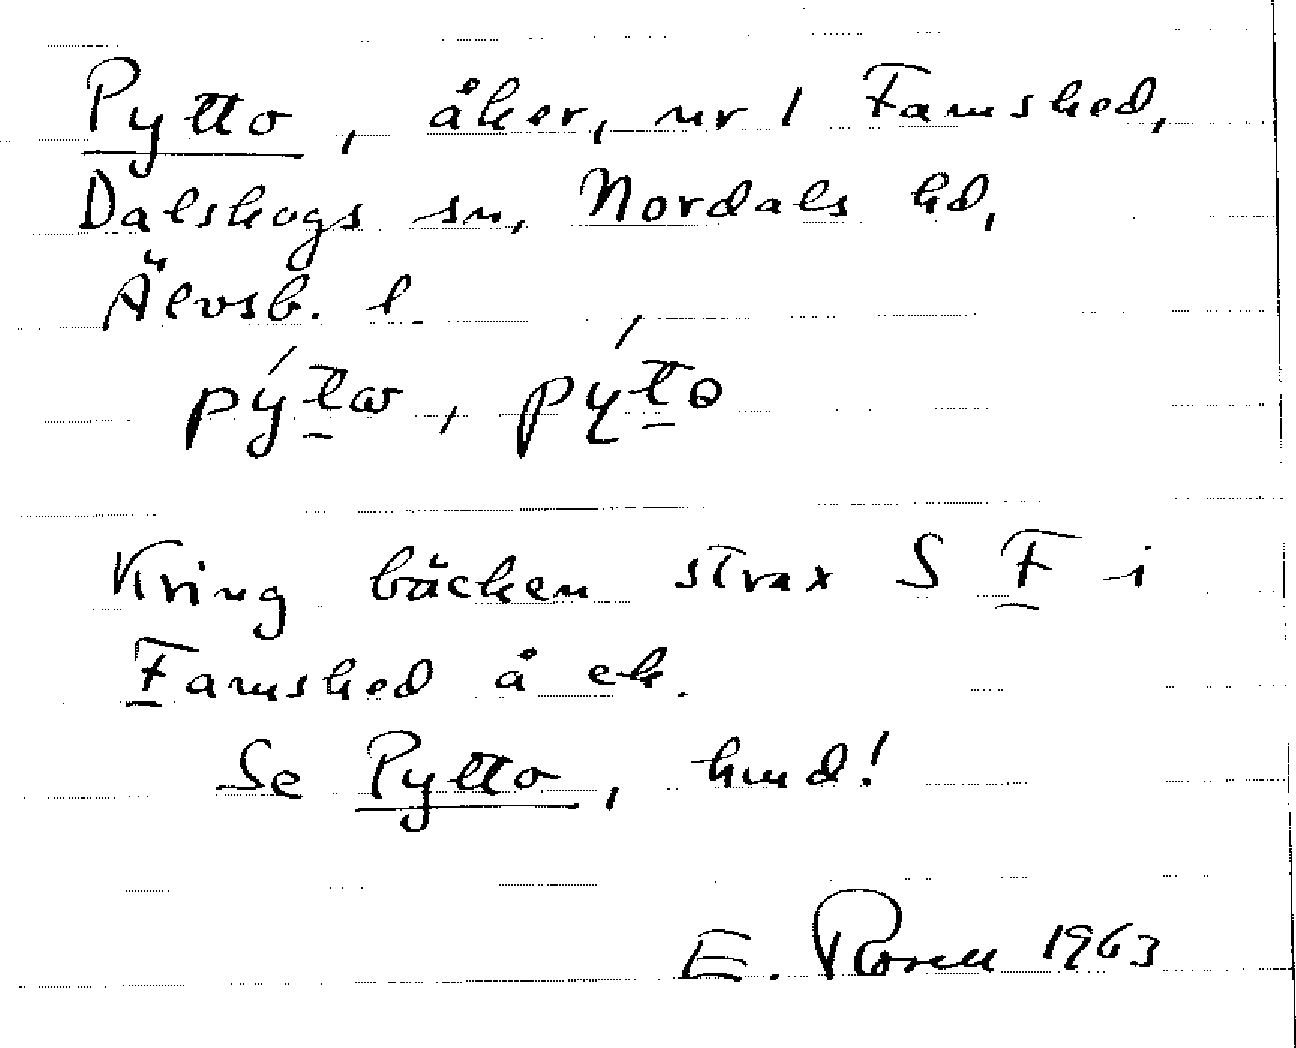 Pytto, åker, nr 1 Famshed,
Dalskogs sn, Nordals hd,
Älvsb. l.
Kring bäcken strax S F i
Famshed å ek.
Se Pytto, hmd!
E. Rosell 1963